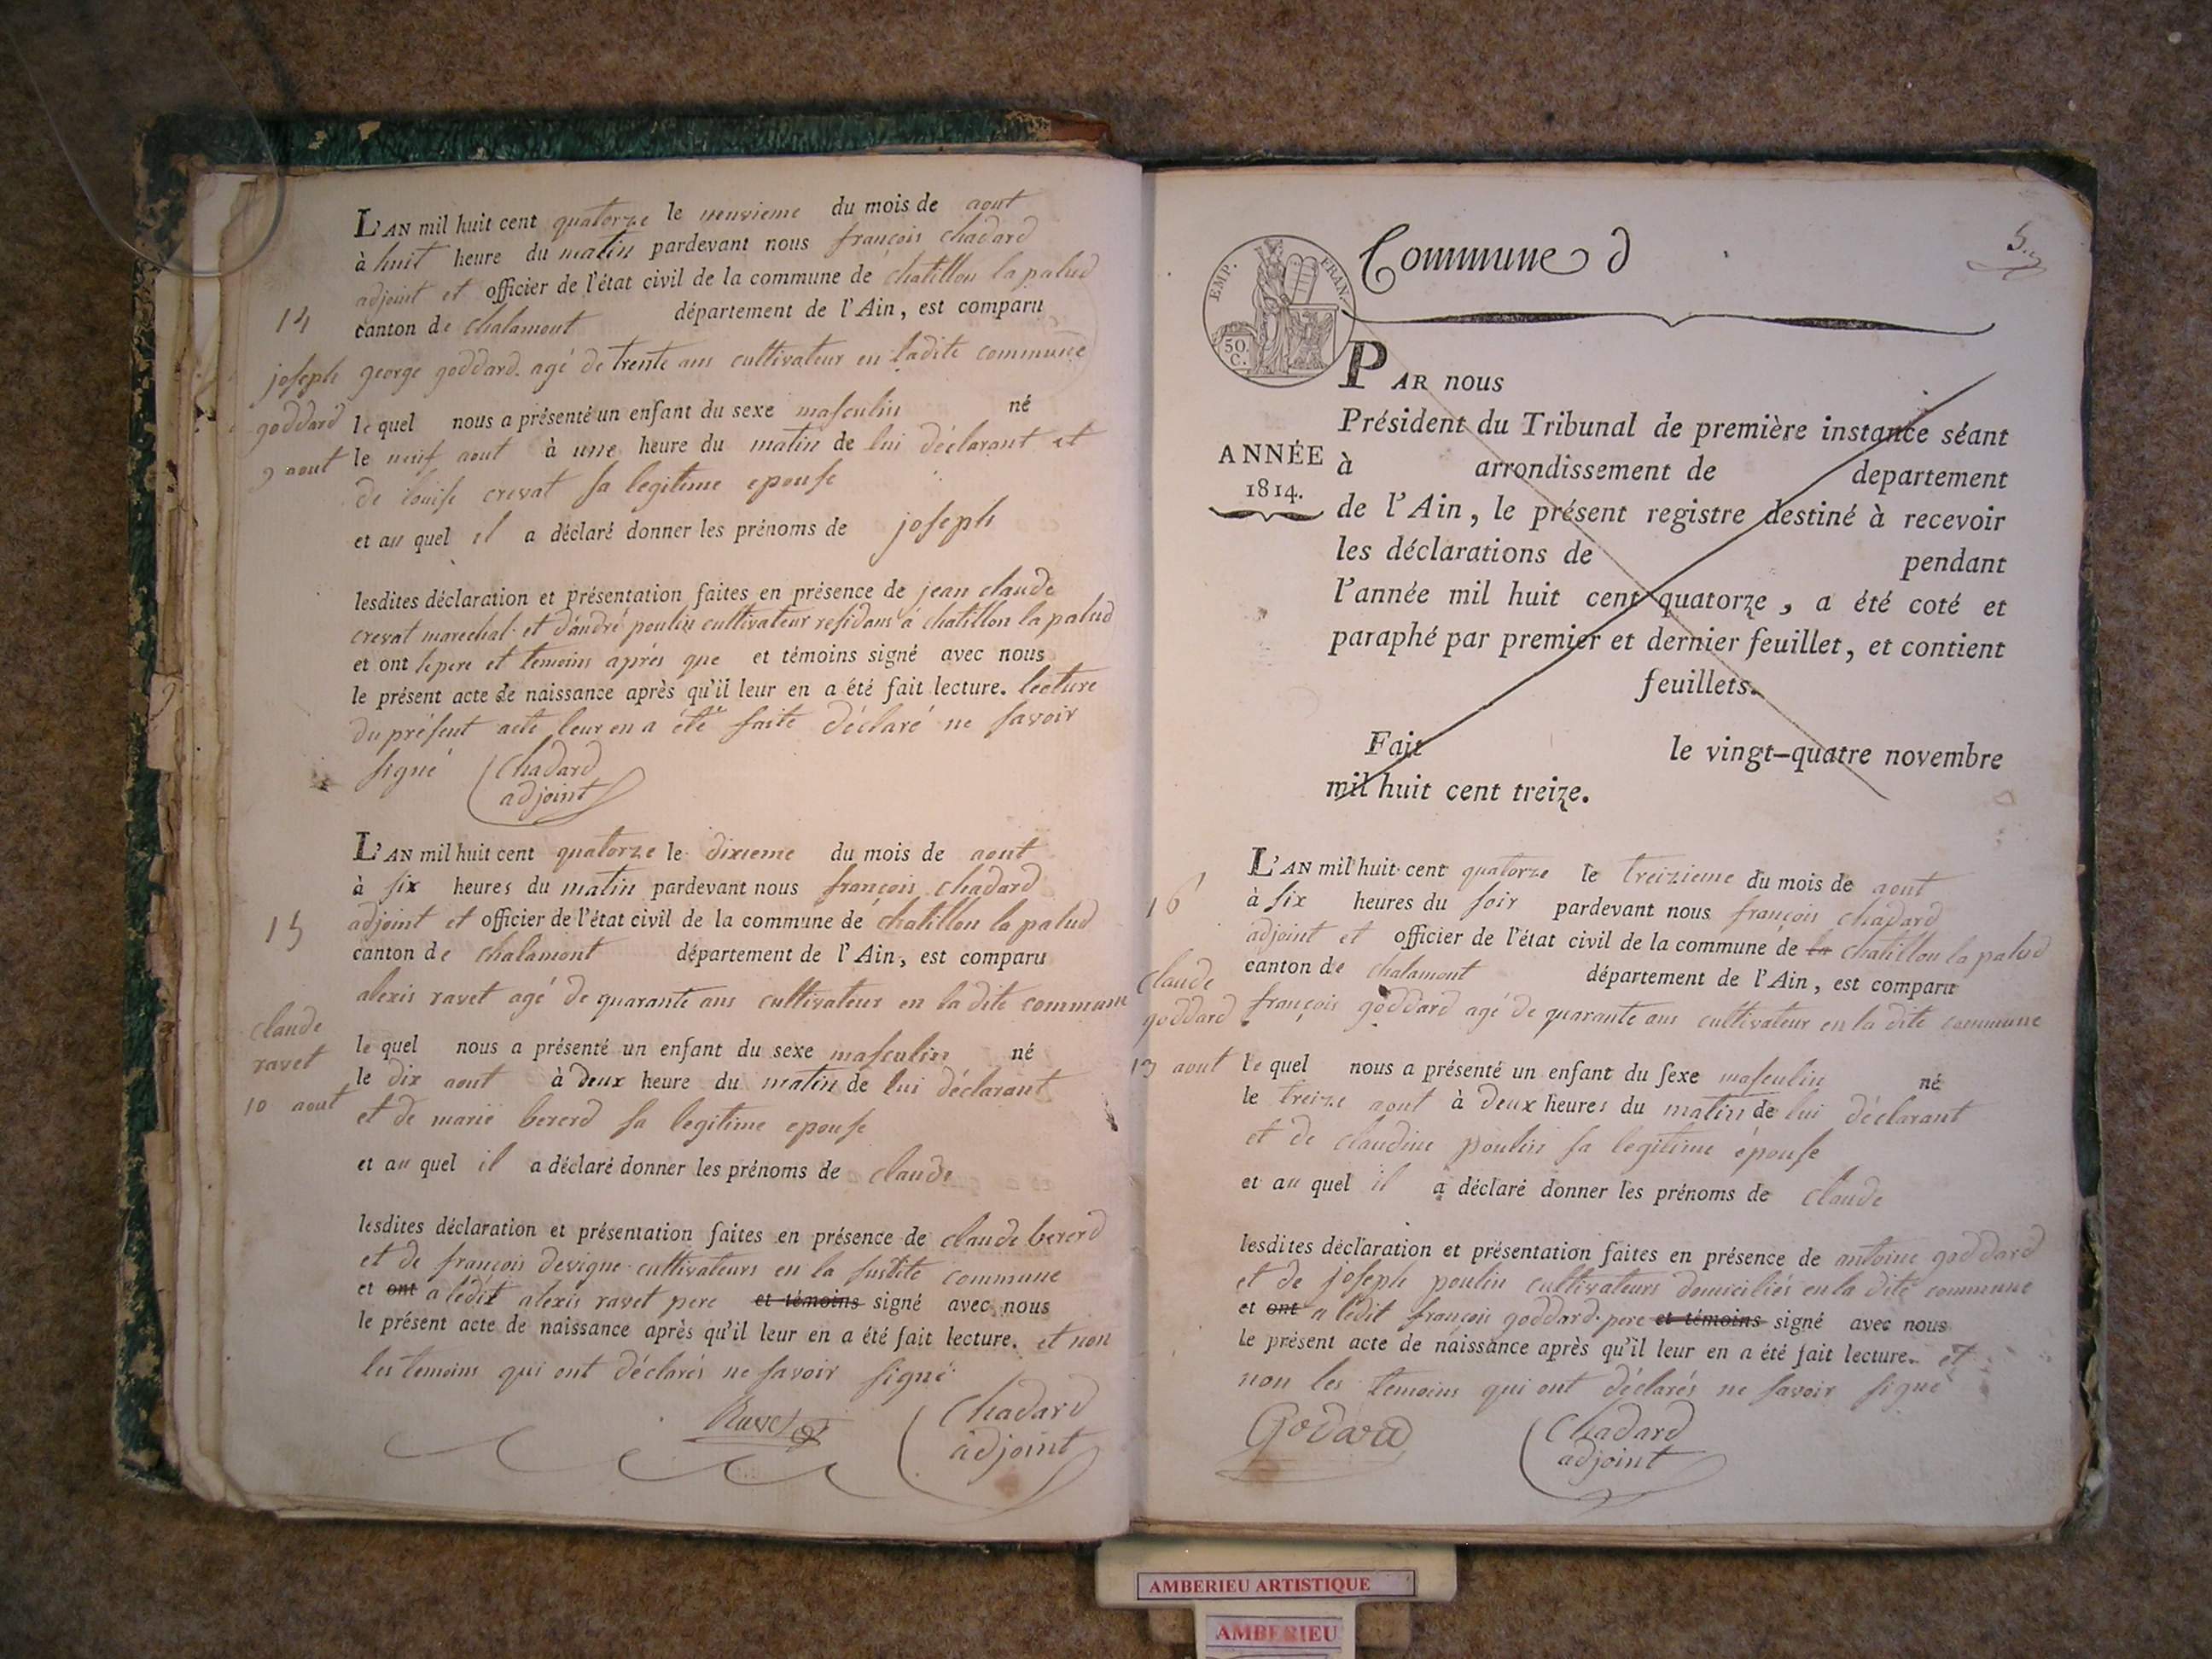 L'AN mil huit cent quatorze le neuvieme du mois de aout
à huit heure du matin pardevant nous françois chadard
adjoint et officier de l'état civil de la commune de chatillon la palud
canton de chalamont département de l'Ain, est comparu
14
george goddard agé de trente ans cultivateur en ladite commune
joseph
goddard
9 aout
le quel nous a présenté un enfant du sexe masculin né
le neuf aout à une heure du matin de lui déclarant et
de louise crevat sa legitime epouse
et au quel il a déclaré donner les prénoms de joseph
lesdites déclaration et présentation faites en présence de jean claude
crevat marechal et d'andré poulin cultivateur résidans à chatillon la palud
et ont le pere et temoins après que et témoins signé avec nous
le présent acte de naissance après qu'il leur en a été fait lecture. lecture
du présent acte leur en a été faite déclaré ne savoir
signé Chadard
adjoint
L'AN mil huit cent quatorze le dixieme du mois de aout
à six heures du matin pardevant nous françois chadard
15
adjoint et officier de l'état civil de la commune de chatillon la palud
canton de chalamont département de l'Ain, est comparu
alexis ravet agé de quarante ans cultivateur en la dite commune
claude
ravet
10 aout
le quel nous a présenté un enfant du sexe masculin né
le dix aout à deux heure du matin de lui déclarant
et de marie bererd sa legitime epouse
et au quel il a déclaré donner les prénoms de claude
lesdites déclaration et présentation faites en présence de claude bererd
et de françois devigne cultivateurs en la susdite commune
et ont a ledit alexis ravet pere et témoins signé avec nous
le présent acte de naissance après qu'il leur en a été fait lecture. et non
les temoins qui ont déclarés ne savoir signé
Ravet
Chadard
adjoint
Commune d
5
EMP. FRAN.
50.
C.
PAR nous
Président du Tribunal de première instance séant
ANNÉE
1814.
à arrondissement de departement
de l'Ain, le présent registre destiné à recevoir
les déclarations de pendant
l'année mil huit cent quatorze, a été coté et
paraphé par premier et dernier feuillet, et contient
feuillets.
Fait le vingt-quatre novembre
mil huit cent treize.
L'AN mil huit cent quatorze le treizieme du mois de aout
16
à six heures du soir pardevant nous françois chadard
adjoint et officier de l'état civil de la commune de la chatillon la palud
canton de chalamont département de l'Ain, est comparu
claude
goddard
13 aout
françois goddard agé de quarante ans cultivateur en la dite commune
le quel nous a présenté un enfant du sexe masculin né
le treize aout à deux heures du matin de lui déclarant
et de claudine poulin sa legitime épouse
et au quel il a déclaré donner les prénoms de claude
lesdites déclaration et présentation faites en présence de antoine goddard
et de joseph poulin cultivateurs domiciliés en la dite commune
et ont a ledit françois goddard pere et témoins signé avec nous
le présent acte de naissance après qu'il leur en a été fait lecture. et
non les temoins qui ont déclarés ne savoir signé
Godard
Chadard
adjoint
AMBERIEU ARTISTIQUE
AMBERIEU